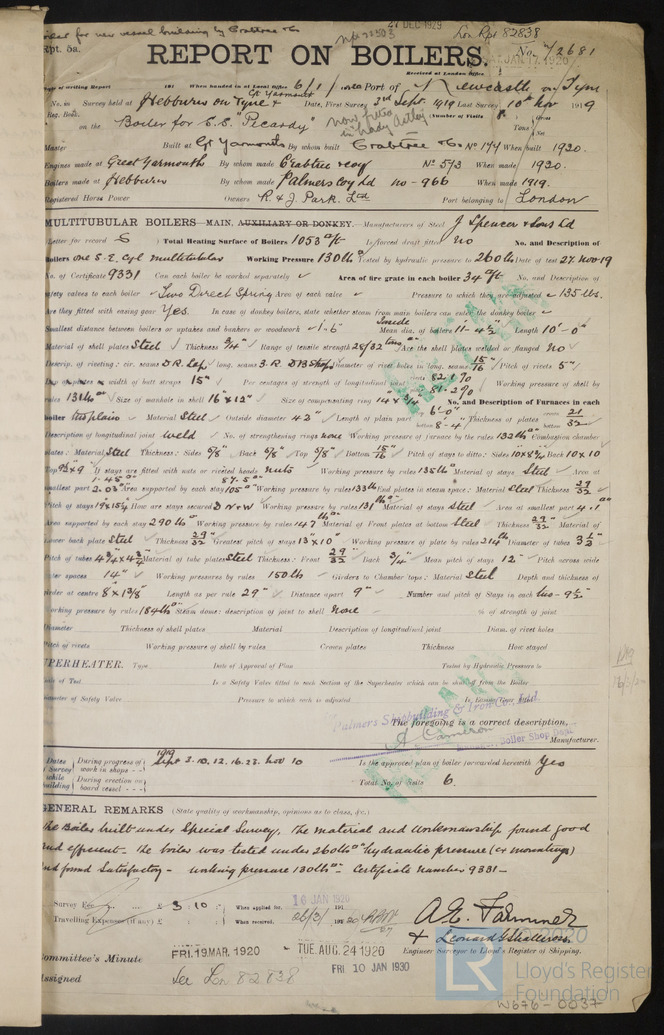 Boiler for new vessel building by Crabtree & Co
27 DEC 1929
Lon Rpt 82838
Rpt. 5a.
REPORT ON BOILERS.
No. 72681
JAN 17. 1920
Received at London Office
of writing Report 191 When handed in at Local Office 6/1/ Port of Newcastle on Tyne
No. in Survey held at Hebburn on Tyne & Gt Yarmouth Date, First Survey 3rd Sept. 1919 Last Survey 10th Nov 1919
Reg. Book. (Number of Visits
on the Boiler for S.S. "Picardy" Tons
now fitted in Lady Astley
Master Built at Gt Yarmouth By whom built Crabtree & Co No 174 When built 1920.
Engines made at Great Yarmouth By whom made Crabtree & Coy No 573 When made 1920.
Boilers made at Hebburn By whom made Palmers Coy Ld no - 966 When made 1919.
Registered Horse Power Owners R. & J. Park. Ltd Port belonging to London
MULTITUBULAR BOILERS MAIN, AUXILIARY OR DONKEY. Manufacturers of Steel J Spencer & Sons Ld
Letter for record S Total Heating Surface of Boilers 1053 sq ft Is forced draft fitted no No. and Description of
Boilers one S.E. Cyl multitubular Working Pressure 130 lbs Tested by hydraulic pressure to 260 lbs Date of test 27. Nov 19
No. of Certificate 9331 Can each boiler be worked separately Area of fire grate in each boiler 34 sq ft No. and Description of
safety valves to each boiler Two Direct Spring Area of each valve Pressure to which they are adjusted 135 lbs.
Are they fitted with easing gear Yes. In case of donkey boilers, state whether steam from main boilers can enter the donkey boiler
Smallest distance between boilers or uptakes and bunkers or woodwork 1'-6" Inside Mean dia. of boilers 11-4½" Length 10'-0"
Material of shell plates Steel Thickness ¾" Range of tensile strength 28/32 tons Are the shell plates welded or flanged no
Descrip. of riveting: cir. seams D.R. Lap long. seams 3.R. DBStraps Diameter of rivet holes in long. seams 15/16 Pitch of rivets 5"
Lap of plates or width of butt straps 15" Per centages of strength of longitudinal joint 82.1% 81.2% Working pressure of shell by
rules 131 lbs Size of manhole in shell 16"x12" Size of compensating ring 14 x ¾ No. and Description of Furnaces in each
boiler two plain Material Steel Outside diameter 42" Length of plain part 6'-0" bottom 8-4" Thickness of plates bottom 21/32
Description of longitudinal joint weld No. of strengthening rings none Working pressure of furnace by the rules 132 lbs Combustion chamber
plates: Material Steel Thickness: Sides 5/8" Back 5/8" Top 5/8" Bottom 15/16 Pitch of stays to ditto: Sides 10"x8¾" Back 10x10
Top 9½x9" If stays are fitted with nuts or riveted heads nuts Working pressure by rules 135 lbs Material of stays Steel Area at
smallest part 1.45 2.03 Area supported by each stay 87.5 105 Working pressure by rules 133 lbs End plates in steam space: Material Steel Thickness 29/32
Pitch of stays 19"x15¼ How are stays secured D N & W Working pressure by rules 131 lbs Material of stays Steel Area at smallest part 4.1
Area supported by each stay 290 Working pressure by rules 147 Material of Front plates at bottom Steel Thickness 29/32 Material of
Lower back plate Steel Thickness 29/32 Greatest pitch of stays 13"x10" Working pressure of plate by rules 214 lbs Diameter of tubes 3½"
Pitch of tubes 4¾"x4¾" Material of tube plates Steel Thickness: Front 29/32 Back ¾" Mean pitch of stays 12" Pitch across wide
water spaces 14" Working pressures by rules 150 lbs Girders to Chamber tops: Material Steel Depth and thickness of
girder at centre 8"x1⅜" Length as per rule 29" Distance apart 9" Number and pitch of Stays in each two - 9½"
Working pressure by rules 184 lbs Steam dome: description of joint to shell None % of strength of joint
Diameter Thickness of shell plates Material Description of longitudinal joint Diam. of rivet holes
Pitch of rivets Working pressure of shell by rules Crown plates Thickness How stayed
SUPERHEATER. Type Date of Approval of Plan Tested by Hydraulic Pressure to
Date of Test Is a Safety Valve fitted to each Section of the Superheater which can be shut off from the Boiler
Diameter of Safety Valve Pressure to which each is adjusted Is Easing Gear fitted
Palmers Shipbuilding & Iron Co., Ltd
The foregoing is a correct description,
A Cameron Manufacturer.
Manager, Boiler Shop Dept
Dates of Survey while building
During progress of work in shops - - 1919 Sept 3. 10. 12. 16. 23. Nov 10
During erection on board vessel - - -
Is the approved plan of boiler forwarded herewith Yes
Total No. of Visits 6.
GENERAL REMARKS (State quality of workmanship, opinions as to class, &c.)
The Boiler built under Special Survey. The material and workmanship found good
and efficient. The boiler was tested under 260 lbs hydraulic pressure (& mountings)
and found Satisfactory - working pressure 130 lbs - Certificate number 9331 -
Survey Fee £ 3 : 10 : When applied for, 10 JAN 1920
Travelling Expenses (if any) £ : : When received, 26/3/1920
A. E. Farminer
& Leonard G Shallcross
Engineer Surveyor to Lloyd's Register of Shipping.
Committee's Minute FRI. 19 MAR. 1920 TUE. AUG. 24 1920
FRI 10 JAN 1930
Assigned See Lon 82838
LR
Lloyd's Register
Foundation
W676-0037